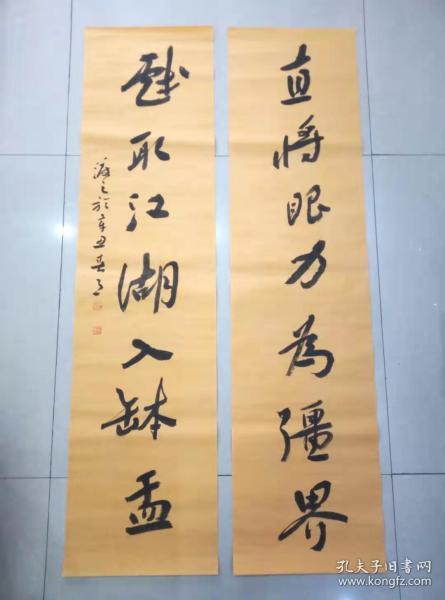 直将眼力為疆界
戲取江湖入缽盂
於辛丑春月
孔夫子旧书网
www.kongfz.com